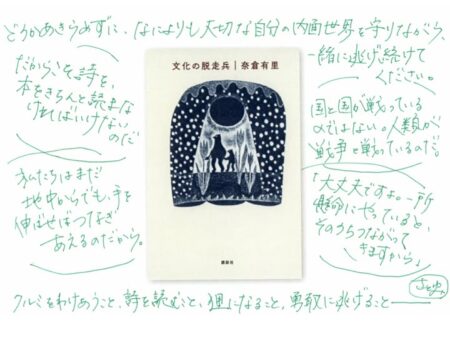 どうかあきらめずに、なによりも大切な自分の内面世界を守りながら、
一緒に逃げ続けて
ください。
だからこそ詩を、
本をきちんと読まな
ければいけない
のだ
文化の脱走兵｜奈倉有里
国と国が戦っている
のではない。人類が
戦争と戦っているのだ。
私たちはまだ
地中からでも、手を
伸ばせばつなぎ
あえるのだから。
「大丈夫ですよ。一所
懸命にやっていると、
そのうちつながって
きますから」
講談社
クルミをわけあうこと、詩を読むこと、狸になること、勇敢に逃げること